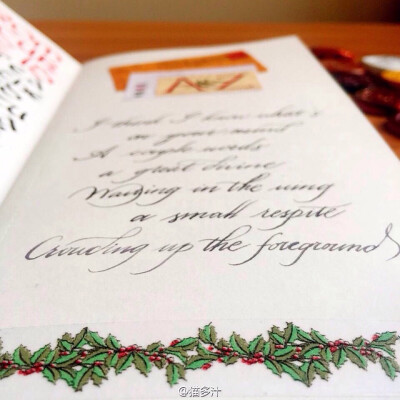 I think I know what's
on your mind
A couple words
a great divide
Waiting in the wing
a small respite
Crowding up the foreground
@倍多汁